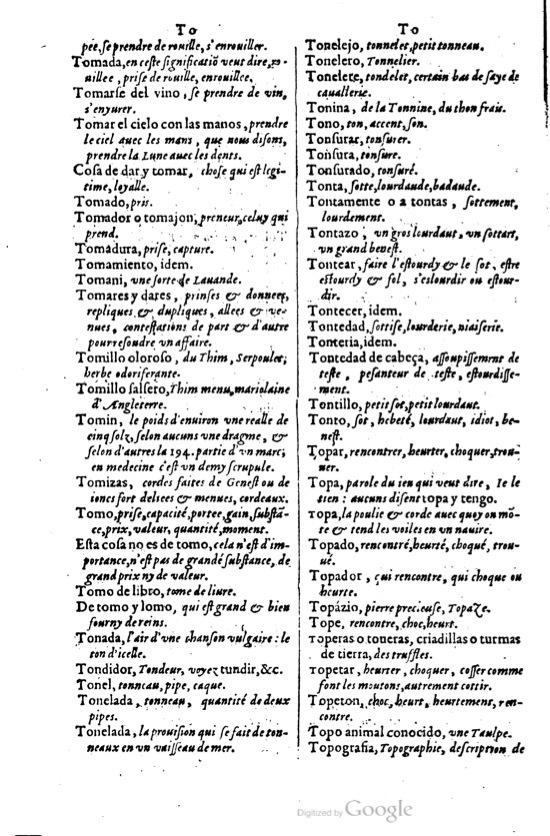 To
pée, se prendre de rouille, s'enrouiller.
Tomada, en ceste significatiō veut dire, ro-
uillee, prise de rouille, enrouillee.
Tomarse del vino, se prendre de vin,
s'enyurer.
Tomar el cielo con las manos, prendre
le ciel auec les mans, que nous disons,
prendre la Lune auec les dents.
Cosa de dar y tomar, chose qui est legi-
time, loyalle.
Tomado, pris.
Tomador o tomajon, preneur, celuy qui
prend.
Tomadura, prise, capture.
Tomamiento, idem.
Tomani, vne sorte de Lauande.
Tomares y dares, prinses & donnees,
repliques & dupliques, allees & ve-
nues, contestations de part & d'autre
pour resoudre vn affaire.
Tomillo oloroso, du Thim, Serpoulet;
herbe odoriferante.
Tomillo salsero, Thim menu, mariolaine
d'Angleterre.
Tomin, le poids d'enuiron vne realle de
cinq solz, selon aucuns vne dragme, &
selon d'autres la 194. partie d'vn marc;
en medecine c'est vn demy scrupule.
Tomizas, cordes faites de Genest ou de
ioncs fort deliees & menues, cordeaux.
Tomo, prise, capacité, portee, gain, substā-
ce, prix, valeur, quantité, moment.
Esta cosa no es de tomo, cela n'est d'im-
portance, n'est pas de grande substance, de
grand prix ny de valeur.
Tomo de libro, tome de liure.
De tomo y lomo, qui est grand & bien
fourny de reins.
Tonada, l'air d'vne chanson vulgaire: le
ton d'icelle.
Tondidor, Tondeur, voyez tundir, &c.
Tonel, tonneau, pipe, caque.
Tonelada, tonneau, quantité de deux
pipes.
Tonelada, la prouision qui se fait de ton-
neaux en vn vaisseau de mer.
To
Tonelejo, tonnelet, petit tonneau.
Tonelero, Tonnelier.
Tonelete, tondelet, certain bas de saye de
cauallerie.
Tonina, de la Tonnine, du thon frais.
Tono, ton, accent, son.
Tonsurar, tonsurer.
Tonsura, tonsure.
Tonsurado, tonsuré.
Tonta, sotte, lourdaude, badaude.
Tontamente o a tontas, sottement,
lourdement.
Tontazo, vn gros lourdaut, vn sottart,
vn grand benest.
Tontear, faire l'estourdy & le sot, estre
estourdy & fol, s'eslourdir ou estour-
dir.
Tontecer, idem.
Tontedad, sottise, lourderie, niaiserie.
Tonteria, idem.
Tontedad de cabeça, assoupissemrnt de
teste, pesanteur de teste, estourdisse-
ment.
Tontillo, petit sot, petit lourdaut.
Tonto, sot, hebeté, lourdaut, idiot, be-
nest.
Topar, rencontrer, heurter, choquer, trou-
uer.
Topa, parole du ieu qui veut dire, Ie le
tien: aucuns disent topa y tengo.
Topa, la poulie & corde auec quoy on mō-
te & tend les voiles en vn nauire.
Topado, rencontré, heurté, choqué, trou-
ué.
Topador, qui rencontre, qui choque ou
heurte.
Topázio, pierre precieuse, Topaze.
Tope, rencontre, choc, heurt.
Toperas o toneras, criadillas o turmas
de tierra, des truffles.
Topetar, heurter, choquer, cosser comme
font les moutons, autrement cottir.
Topeton, choc, heurt, heurtement, ren-
contre.
Topo animal conocido, vne Taulpe.
Topografia, Topographie, description de
Digitized by Google